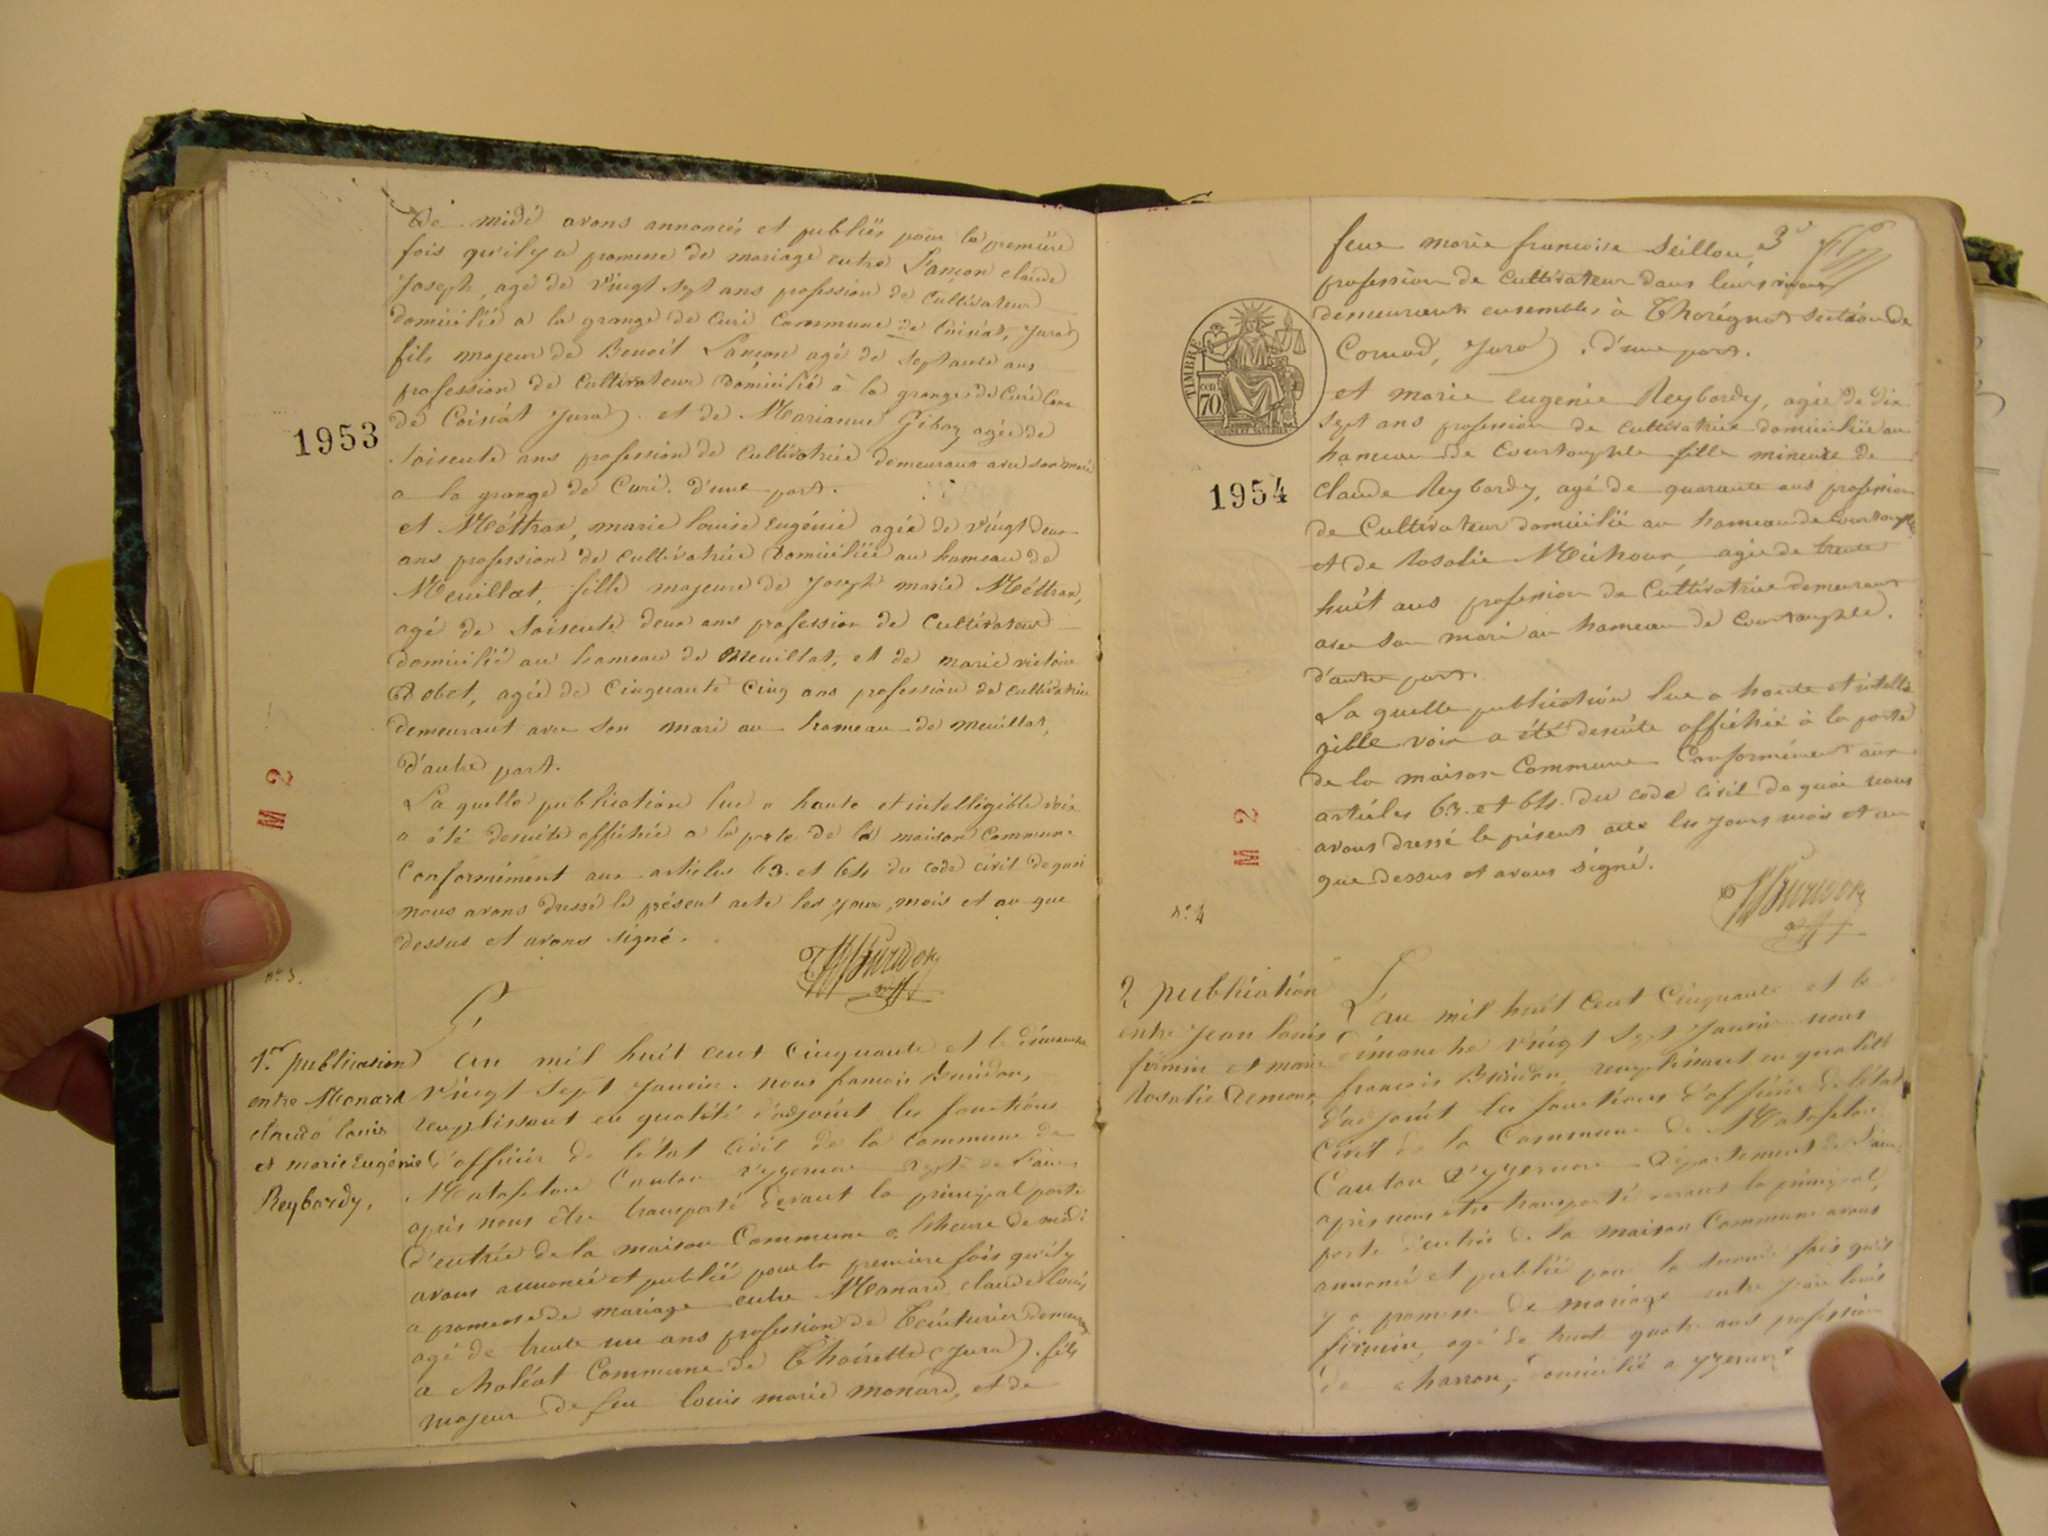 de midi avons annoncés et publiés pour la première
fois qu'il y a promesse de mariage entre Lançon claude
Joseph, agé de vingt sept ans profession de Cultivateur
domicilié a la grange de Curé Commune de Coisiat, Jura)
fils majeur de Benoit Lançon agé de Septante ans
profession de Cultivateur domicilié à la grange de Curé Com
de Coisiat Jura). et de Marianne Giboz agée de
Soisente ans profession de Cultivatrice demeurant avec son mari
a la grange de Curé. d'une part.
et Méttrax, marie louise Eugénie agée de vingt deux
ans profession de cultivatrice domiciliée au hameau de
Meuillat, fille majeure de Joseph marie Méttrax,
agé de Soisente deux ans profession de Cultivateur
domicilié au hameau de Meuillat, et de marie victoire
Bobet, agée de Cinquante Cinq ans profession de cultivatrice
demeurant avec Son mari au hameau de meuillat,
d'autre part.
La quelle publication lue a haute et intelligible voix
a été desuite affichée a la porte de la maison Commune
Conformément aux articles 63. et 64 du code civil de quoi
nous avons dressé le présent acte les jour, mois et an que
dessus et avons signé.
Burdon
1953
M 2
n° 3.
1er publication
entre Monard
claude louis
et marie Eugénie
Reybardy,
L'an mil huit cent Cinquante et le dimanche
vingt sept Janvier. nous francois Burdon,
remplissant en qualité d'adjoint les fonctions
d'officier de l'état civil de la commune de
Matafelon Canton d'yzernore dépt de l'ain
après nous être transporté devant la principal porte
d'entrée de la maison Commune a l'heure de midi
avons annoncé et publié pour la première fois qu'il y
a promesse de mariage entre Monard, claude louis,
agé de trente un ans profession de Teinturier demeurant
a Chaléat Commune de Thoirette (Jura). fils
majeur de feu louis marie monard, et de
feue marie francoise Seillon, 3e
profession de Cultivateur dans leurs vivants
demeurant ensembles à Thorégnat section de
Cornod, Jura). d'une part.
et marie eugénie Reybardy, agée de dix
sept ans profession de cultivatrice domiciliée au
hameau de Courtouphle fille mineure de
Claude Reybardy, agé de quarante ans profession
de Cultivateur domicilié au hameau de Courtouphle
et de Rosalie Michoux, agée de trente
huit ans profession de Cultivatrice demeurant
avec son mari au hameau de Courtouphle.
d'autre part.
La quelle publication lue a haute et intelli
gible voix a été desuite affichée à la porte
de la maison Commune Conformément aux
articles 63. et 64. du code civil de quoi nous
avons dressé le présent acte les jours mois et an
que dessus et avons signé.
Burdon
TIMBRE
70
1954
M 2
n° 4
2 publication
entre Jean louis
firmin et marie
Rosalie
L'an mil huit Cent Cinquante et le
dimanche vingt sept Janvier nous
francois Burdon, remplissant en qualité
d'adjoint les fonctions d'officier de l'état
Civil de la Commune de Matafelon
Canton d'yzernore département de l'ain,
après nous etre transporté devant la principal,
porte d'entrée de la maison Commune avons
annoncé et publié pour la seconde fois qu'il
y a promesse de mariage entre jean louis
firmin, agé de trent quatre ans profession
de charron, domicilié a yzernore